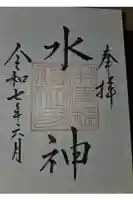 奉拝
水神
令和七年六月